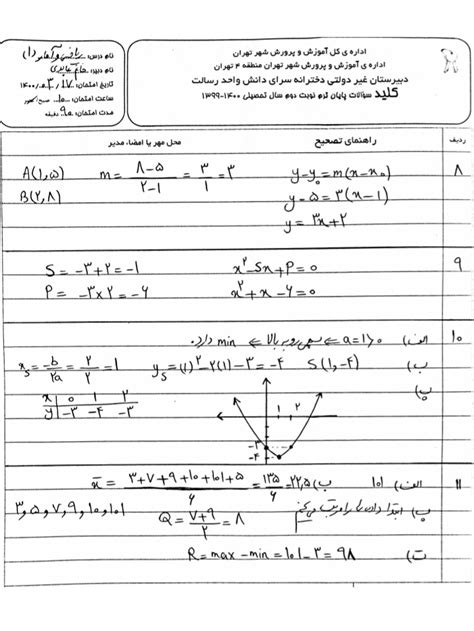 اداره ی کل آموزش و پرورش شهر تهران
اداره ی آموزش و پرورش شهر تهران منطقه ۴ تهران
دبیرستان غیر دولتی دخترانه سرای دانش واحد رسالت
کلید سؤالات پایان ترم نوبت دوم سال تحصیلی ۱۴۰۰-۱۳۹۹
نام درس: ریاضی و آمار (۱)
نام دبیر: خانم
تاریخ امتحان: ۱۴۰۰/۰۳/۱۷
ساعت امتحان: ۱۰ صبح
مدت امتحان: ۹۰ دقیقه
ردیف راهنمای تصحیح محل مهر یا امضاء مدیر
۸
A(۱,۵) m = (۸-۵)/(۲-۱) = ۳/۱ = ۳ y-y₀ = m(x-x₀)
B(۲,۸) y-۵ = ۳(x-۱)
y = ۳x+۲
۹
S = -۳+۲ = -۱ x²-Sx+P=۰
P = -۳×۲ = -۶ x²+x-۶=۰
۱۰
الف) a=۱>۰ ⇐ سهمی رو به بالا ⇐ min دارد.
ب) xs = -b/۲a = ۲/۲ = ۱ ys = (۱)²-۲(۱)-۳ = -۴ S(۱,-۴)
پ)
x ۰ ۱ ۲
y -۳ -۴ -۳
۱ ۲
-۳
-۴
۱۱
الف) ۱۰۱ ب) x̄ = (۳+۷+۹+۱۰+۱۰۱+۵)/۶ = ۱۳۵/۶ = ۲۲,۵
پ) ابتدا داده ها را مرتب می کنیم
۳,۵,۷,۹,۱۰,۱۰۱ Q = (۷+۹)/۲ = ۸
ت) R = max - min = ۱۰۱ - ۳ = ۹۸